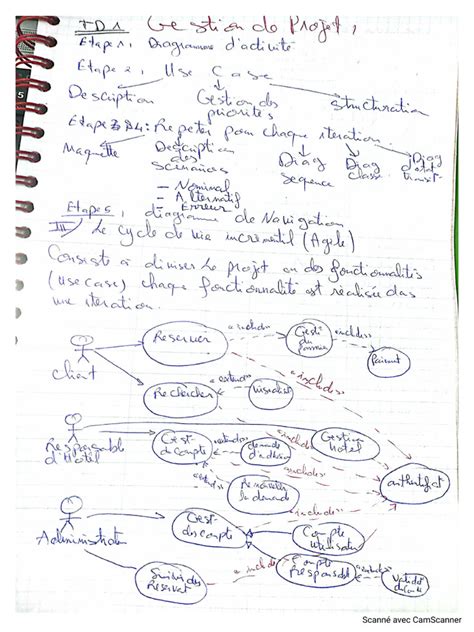 TD1 Gestion de Projet,
Etape 1, Diagramme d'activité
Etape 2, Use Case
Description Gestion des priorités Structuration
Etape 3 Répéter pour chaque iteration
Maquette Description des scénarios Diag sequence Diag classe Diag d'état transit
- Nominal
- Alternatif
Erreur
Etape 5, diagramme de Navigation
III) Le cycle de vie incrémentil (Agile)
Consiste à diviser le projet en des fonctionnalités
(use case) chaque fonctionnalité est réalisée das
une iteration.
Reserver «include» Gesti du
Paiement
Client
«include»
Rechercher «extend»
Responsable d'Hotel
Gest- de compte demande «include» Gestion hotel
la demande
authentifat
Administrat
Gest- des compte «include» Compte utilisateur
Suivi des Reservat «include» Compte Responsable «include» Validat
Scanné avec CamScanner